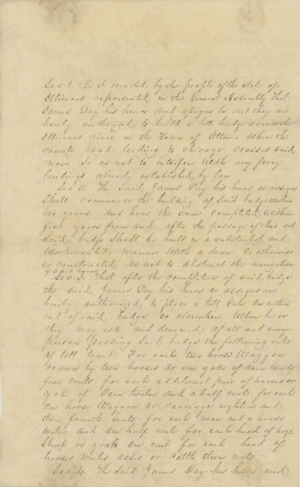 Sec 1 Be it enacted by the people of the state of
Illinois represented in the General Assembly That
James Day his heirs and assigns be and they are
hereby authorized to build a toll bridge across the
Illinois river in the Town of Ottawa where the
county road leading to chicago crosses said
river So as not to interfere with any ferry
landings already established by law
Sec 2 The Said James Day his heirs or assigns
Shall commence the building of Said bridge within
two years and have the same completed within
five years from and after the passage of this act
said bridge Shall be built in a substantial and
workmanlike manner with a draw or otherwise
so constructed as not to obstruct the navigation
of said river
Sec 3 That after the completion of said bridge
the Said James Day his heirs or assigns are
hereby authorized to place a toll Gate on either
end of said bridge or elsewhere where he or
they may ask and demand of all and every
Person passing Said bridge the following rates
of toll (to wit) For each two horse Waggon
drawn by two horses or one yoke of oxen twenty
five cents for each additional pair of horses or
yoke of Oxen twelve and a half cents for each
one horse Waggon or carriage eighteen and
three fourth cents for each man and horse
twelve and one half cents for each head of hogs
Sheep or goats one cent for each head of
horses mules asses or cattle three cents
Sec 4 The Said James Day his heirs and